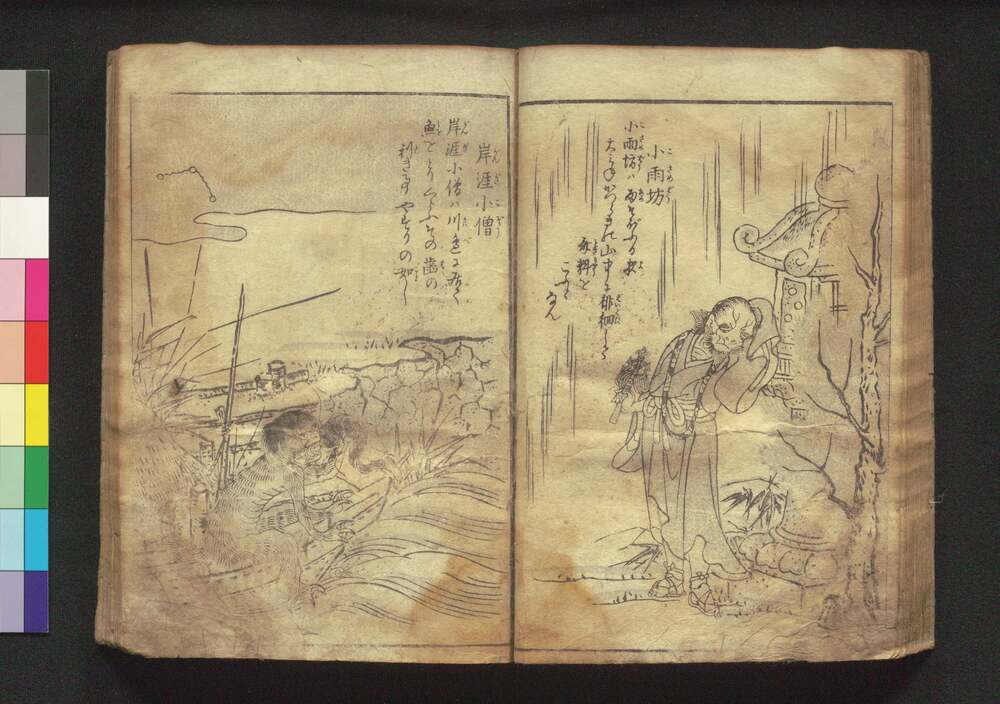 小雨坊
小雨坊ハ雨そぼふる夜
大みねかつらぎの山中に徘徊して
斎料を
こふと
なん
岸涯小僧
岸涯小僧ハ川邊に居て
魚をとりくらふその歯の
利き事やすりの如し